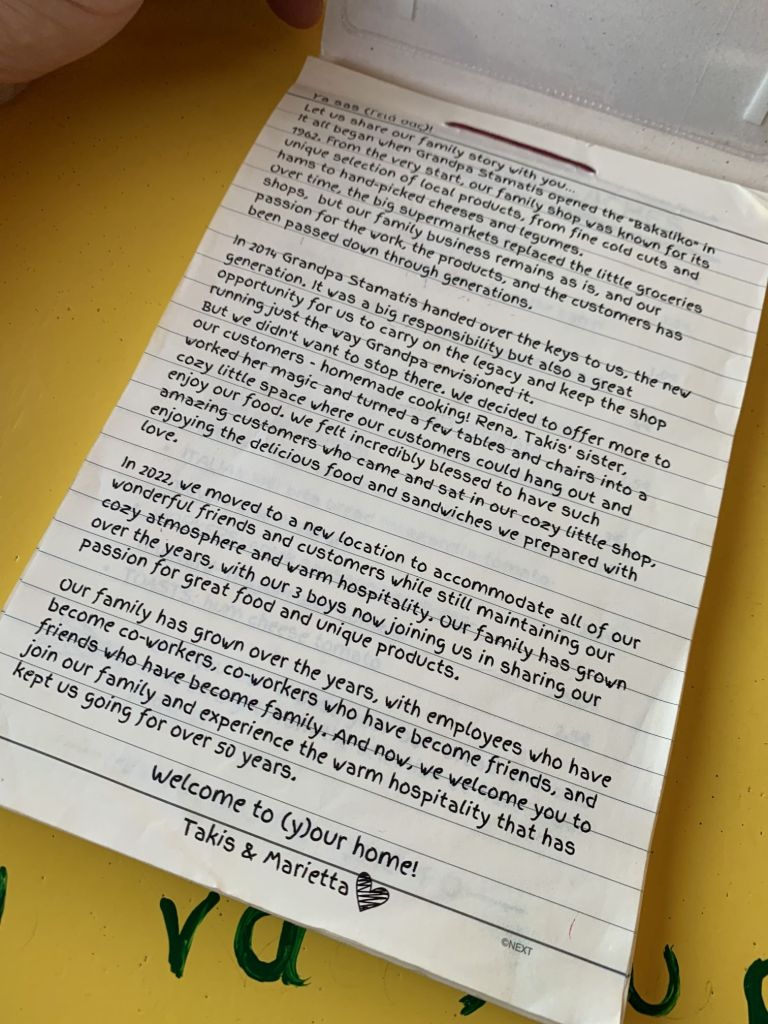 Ya sas (Γειά σας)!
Let us share our family story with you...
It all began when Grandpa Stamatis opened the "Bakaliko" in
1962. From the very start, our family shop was known for its
unique selection of local products, from fine cold cuts and
hams to hand-picked cheeses and legumes.
Over time, the big supermarkets replaced the little groceries
shops, but our family business remains as is, and our
passion for the work, the products, and the customers has
been passed down through generations.
In 2014 Grandpa Stamatis handed over the keys to us, the new
generation. It was a big responsibility but also a great
opportunity for us to carry on the legacy and keep the shop
running just the way Grandpa envisioned it.
But we didn't want to stop there. We decided to offer more to
our customers - homemade cooking! Rena, Takis' sister,
worked her magic and turned a few tables and chairs into a
cozy little space where our customers could hang out and
enjoy our food. We felt incredibly blessed to have such
amazing customers who came and sat in our cozy little shop,
enjoying the delicious food and sandwiches we prepared with
love.
In 2022, we moved to a new location to accommodate all of our
wonderful friends and customers while still maintaining our
cozy atmosphere and warm hospitality. Our family has grown
over the years, with our 3 boys now joining us in sharing our
passion for great food and unique products.
Our family has grown over the years, with employees who have
become co-workers, co-workers who have become friends, and
friends who have become family. And now, we welcome you to
join our family and experience the warm hospitality that has
kept us going for over 50 years.
Welcome to (y)our home!
Takis & Marietta
©NEXT